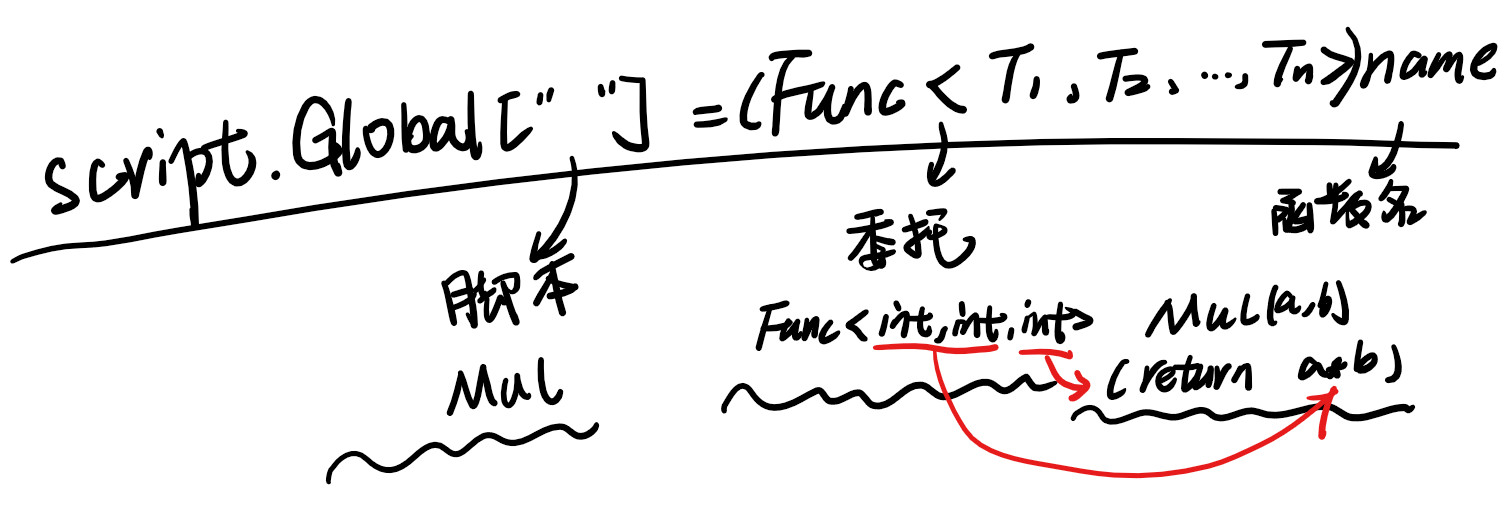 script.Global[" "] =(Func< T1, T2, ..., Tn>)name
脚本 委托 函数名
Mul Func<int,int,int> Mul(a,b)
(return a*b)